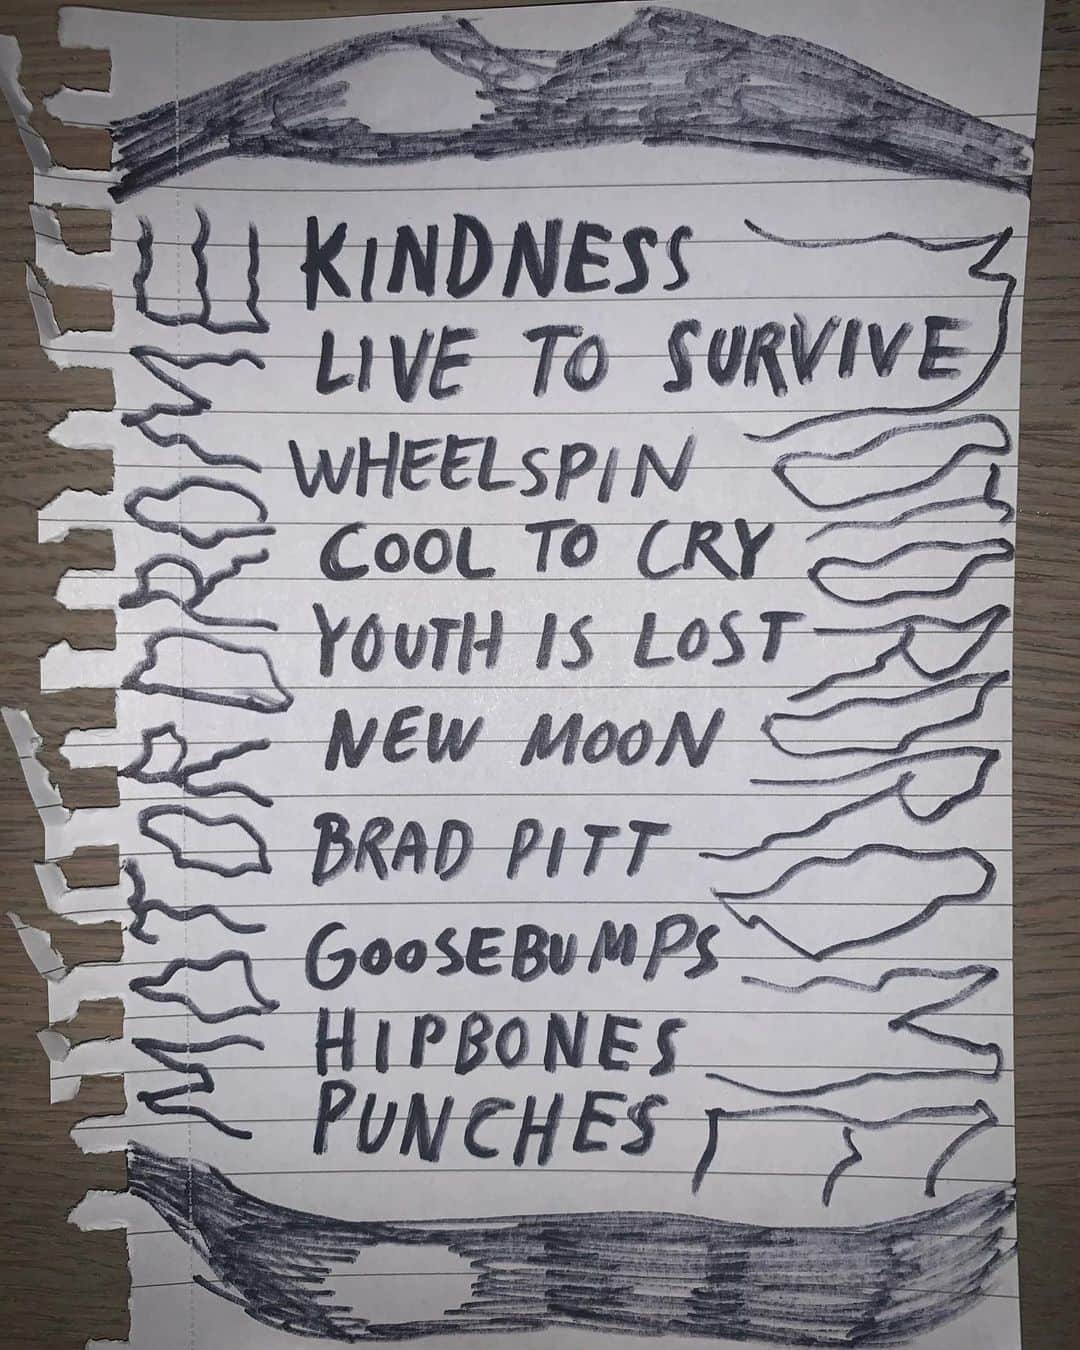 MOTORDROME
KINDNESS
LIVE TO SURVIVE
WHEELSPIN
COOL TO CRY
YOUTH IS LOST
NEW MOON
BRAD PITT
GOOSEBUMPS
HIPBONES
PUNCHES
MOTORDROME